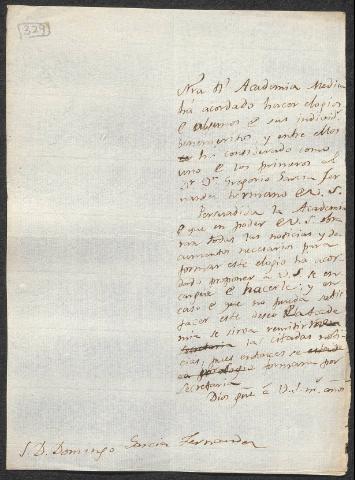 329
Nra Rl Academia Medica
há acordado hacer elogios
à sus individ.s
benemeritos, y entre ellos
ha considerado como
uno de los primeros al
Sr. Dn. Gregorio Garcia Fer
nandez hermano de V.S.
Persuadida la Academia
de que en poder de V.S. obra
ran todas las noticias y do
cumentos necesarios para
formar este elogio ha acor
dado proponer a V.S. se en
cargue de hacerle; y en
caso de que no pueda satis
facer este deseo la Acade
mia se sirva remitir
las citadas noti
cias, pues entonces se
formara por
Secretaria
Dios gue. a V.S. ms. años
S. D. Domingo Garcia Fernandez